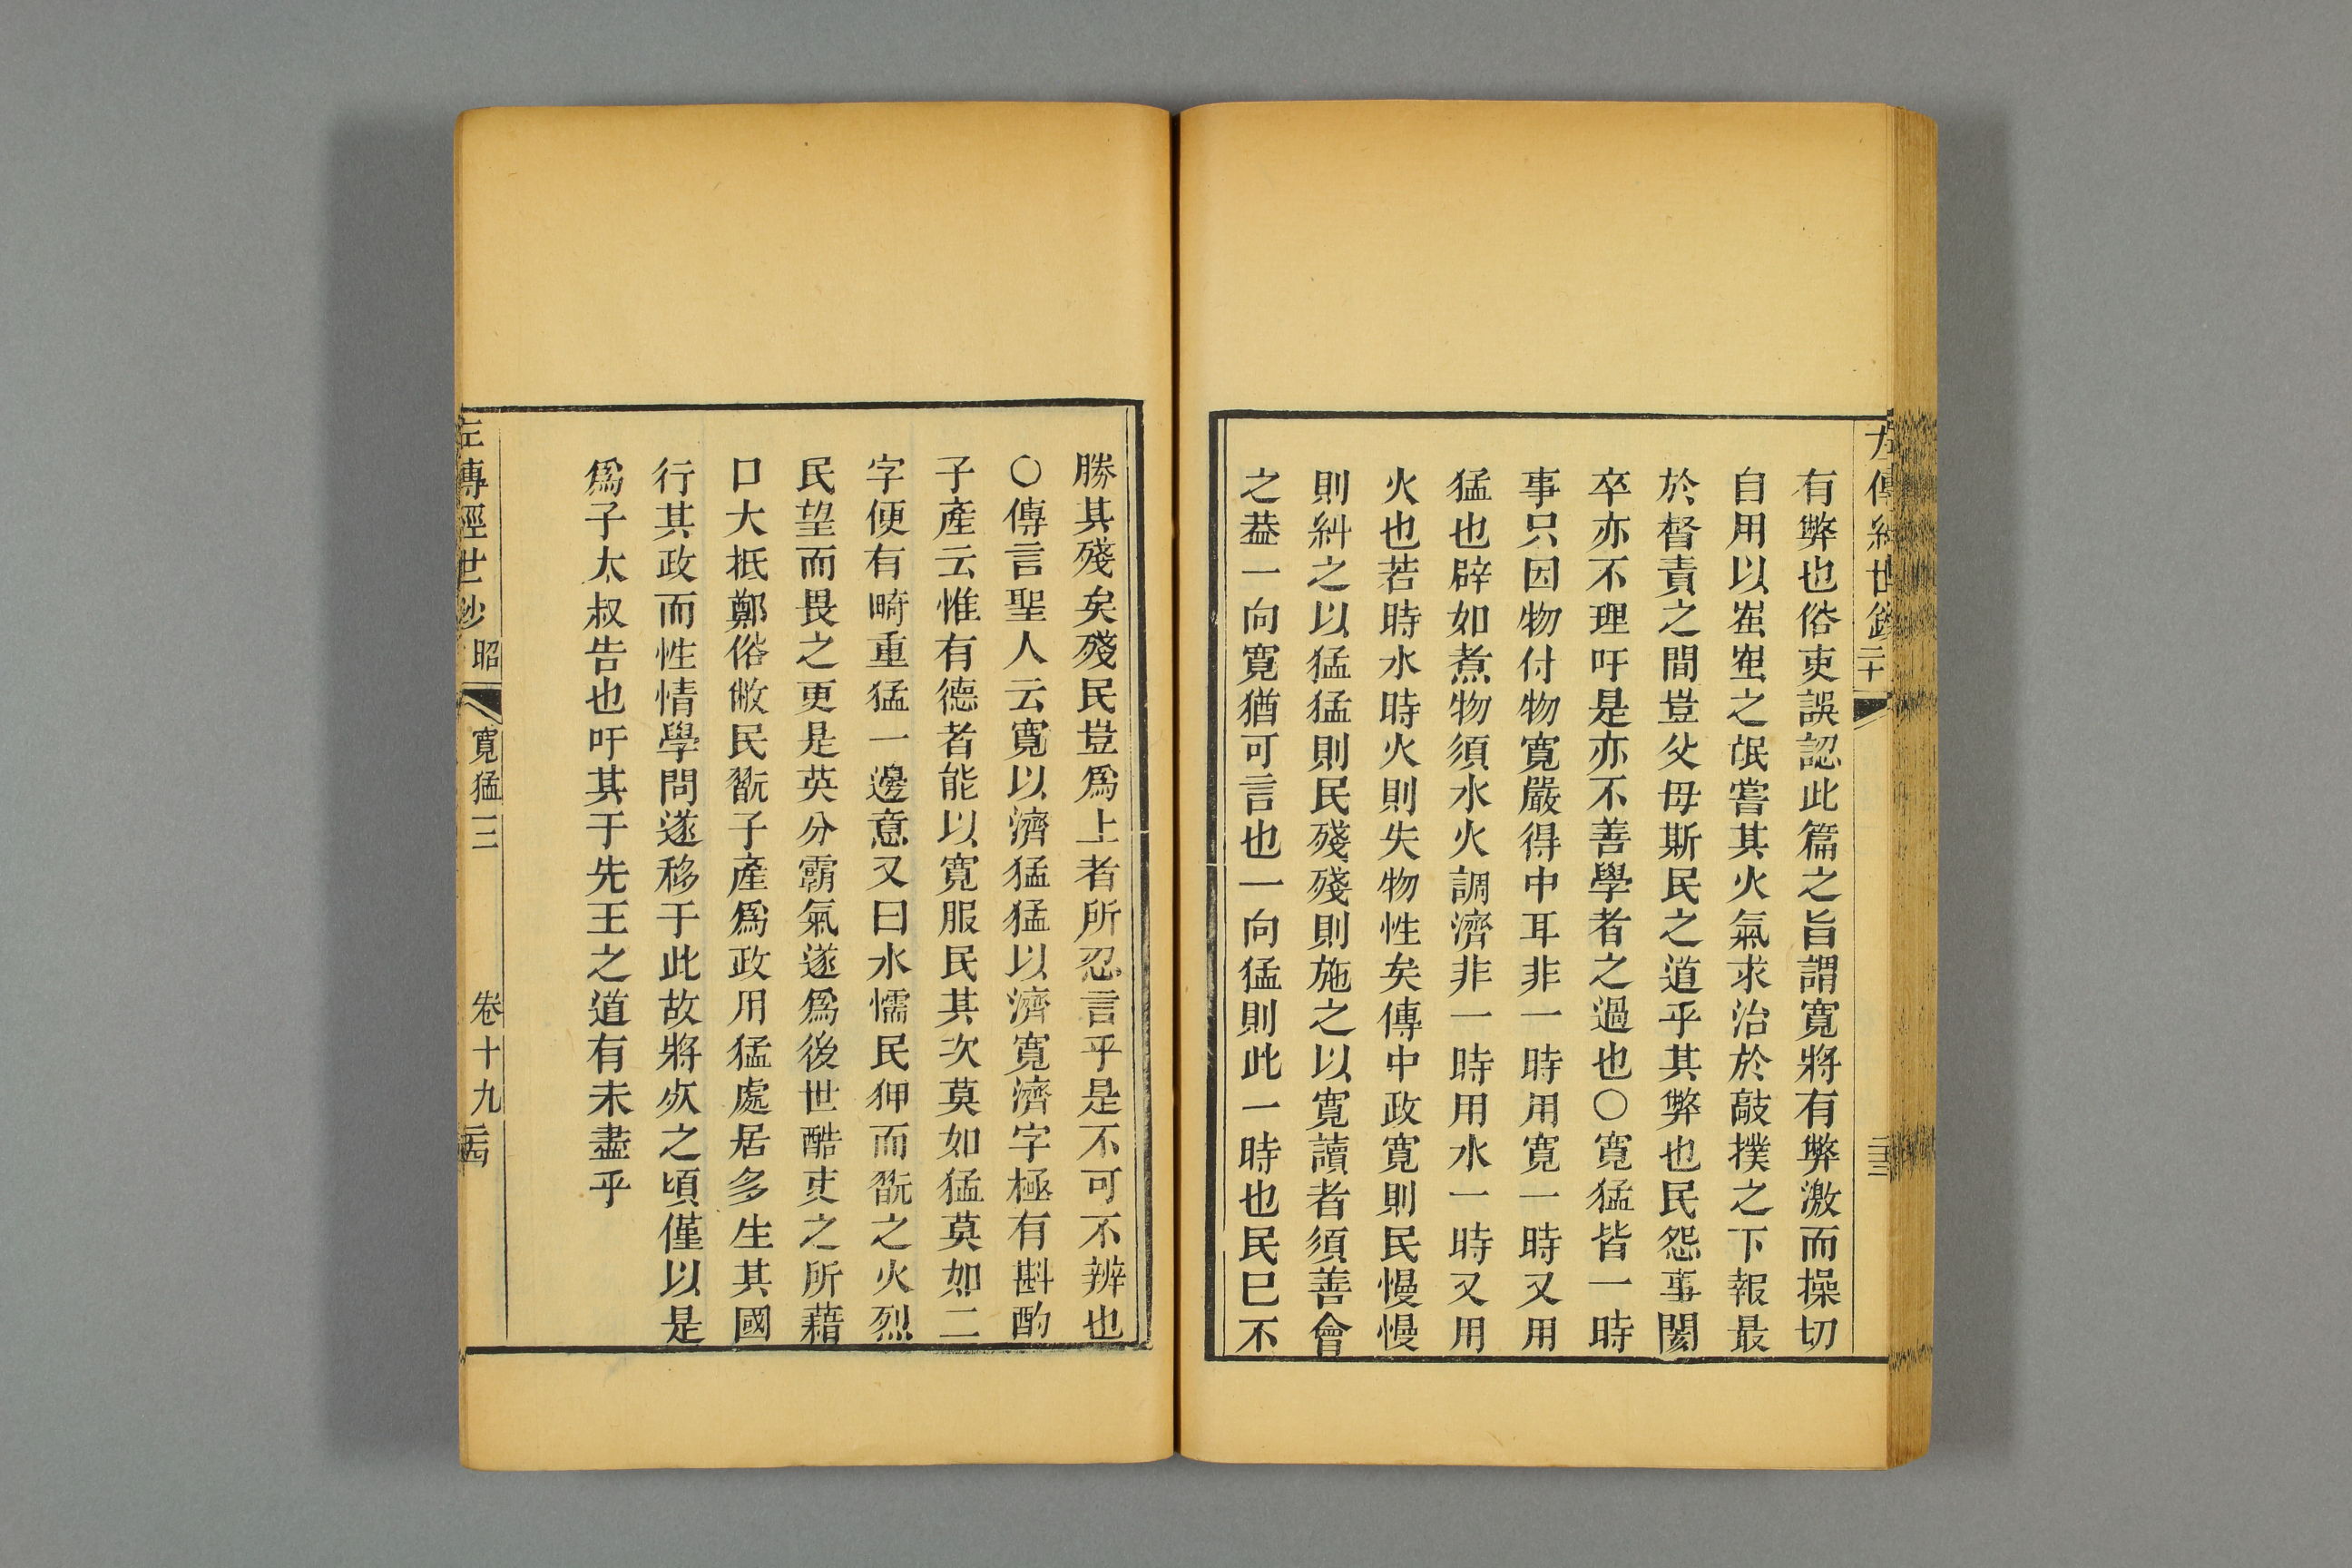 左傳經世鈔 二十 二十三
有弊也俗吏誤認此篇之旨謂寬將有弊激而操切
自用以蚩蚩之氓嘗其火氣求治於敲撲之下報最
於督責之間豈父母斯民之道乎其弊也民怨事闋
卒亦不理吁是亦不善學者之過也〇寬猛皆一時
事只因物付物寬嚴得中耳非一時用寬一時又用
猛也辟如煮物須水火調濟非一時用水一時又用
火也若時水時火則失物性矣傳中政寬則民慢慢
則糾之以猛猛則民殘殘則施之以寬讀者須善會
之葢一向寬猶可言也一向猛則此一時也民巳不
勝其殘矣殘民豈爲上者所忍言乎是不可不辨也
〇傳言聖人云寬以濟猛猛以濟寬濟字極有斟酌
子產云惟有德者能以寬服民其次莫如猛莫如二
字便有畸重猛一邊意又曰水懦民狎而翫之火烈
民望而畏之更是英分霸氣遂爲後世酷吏之所藉
口大抵鄭俗敝民翫子產爲政用猛處居多生其國
行其政而性情學問遂移于此故將死之頃僅以是
爲子太叔告也吁其于先王之道有未盡乎
左傳經世鈔 昭 寬猛三 卷十九 二十四